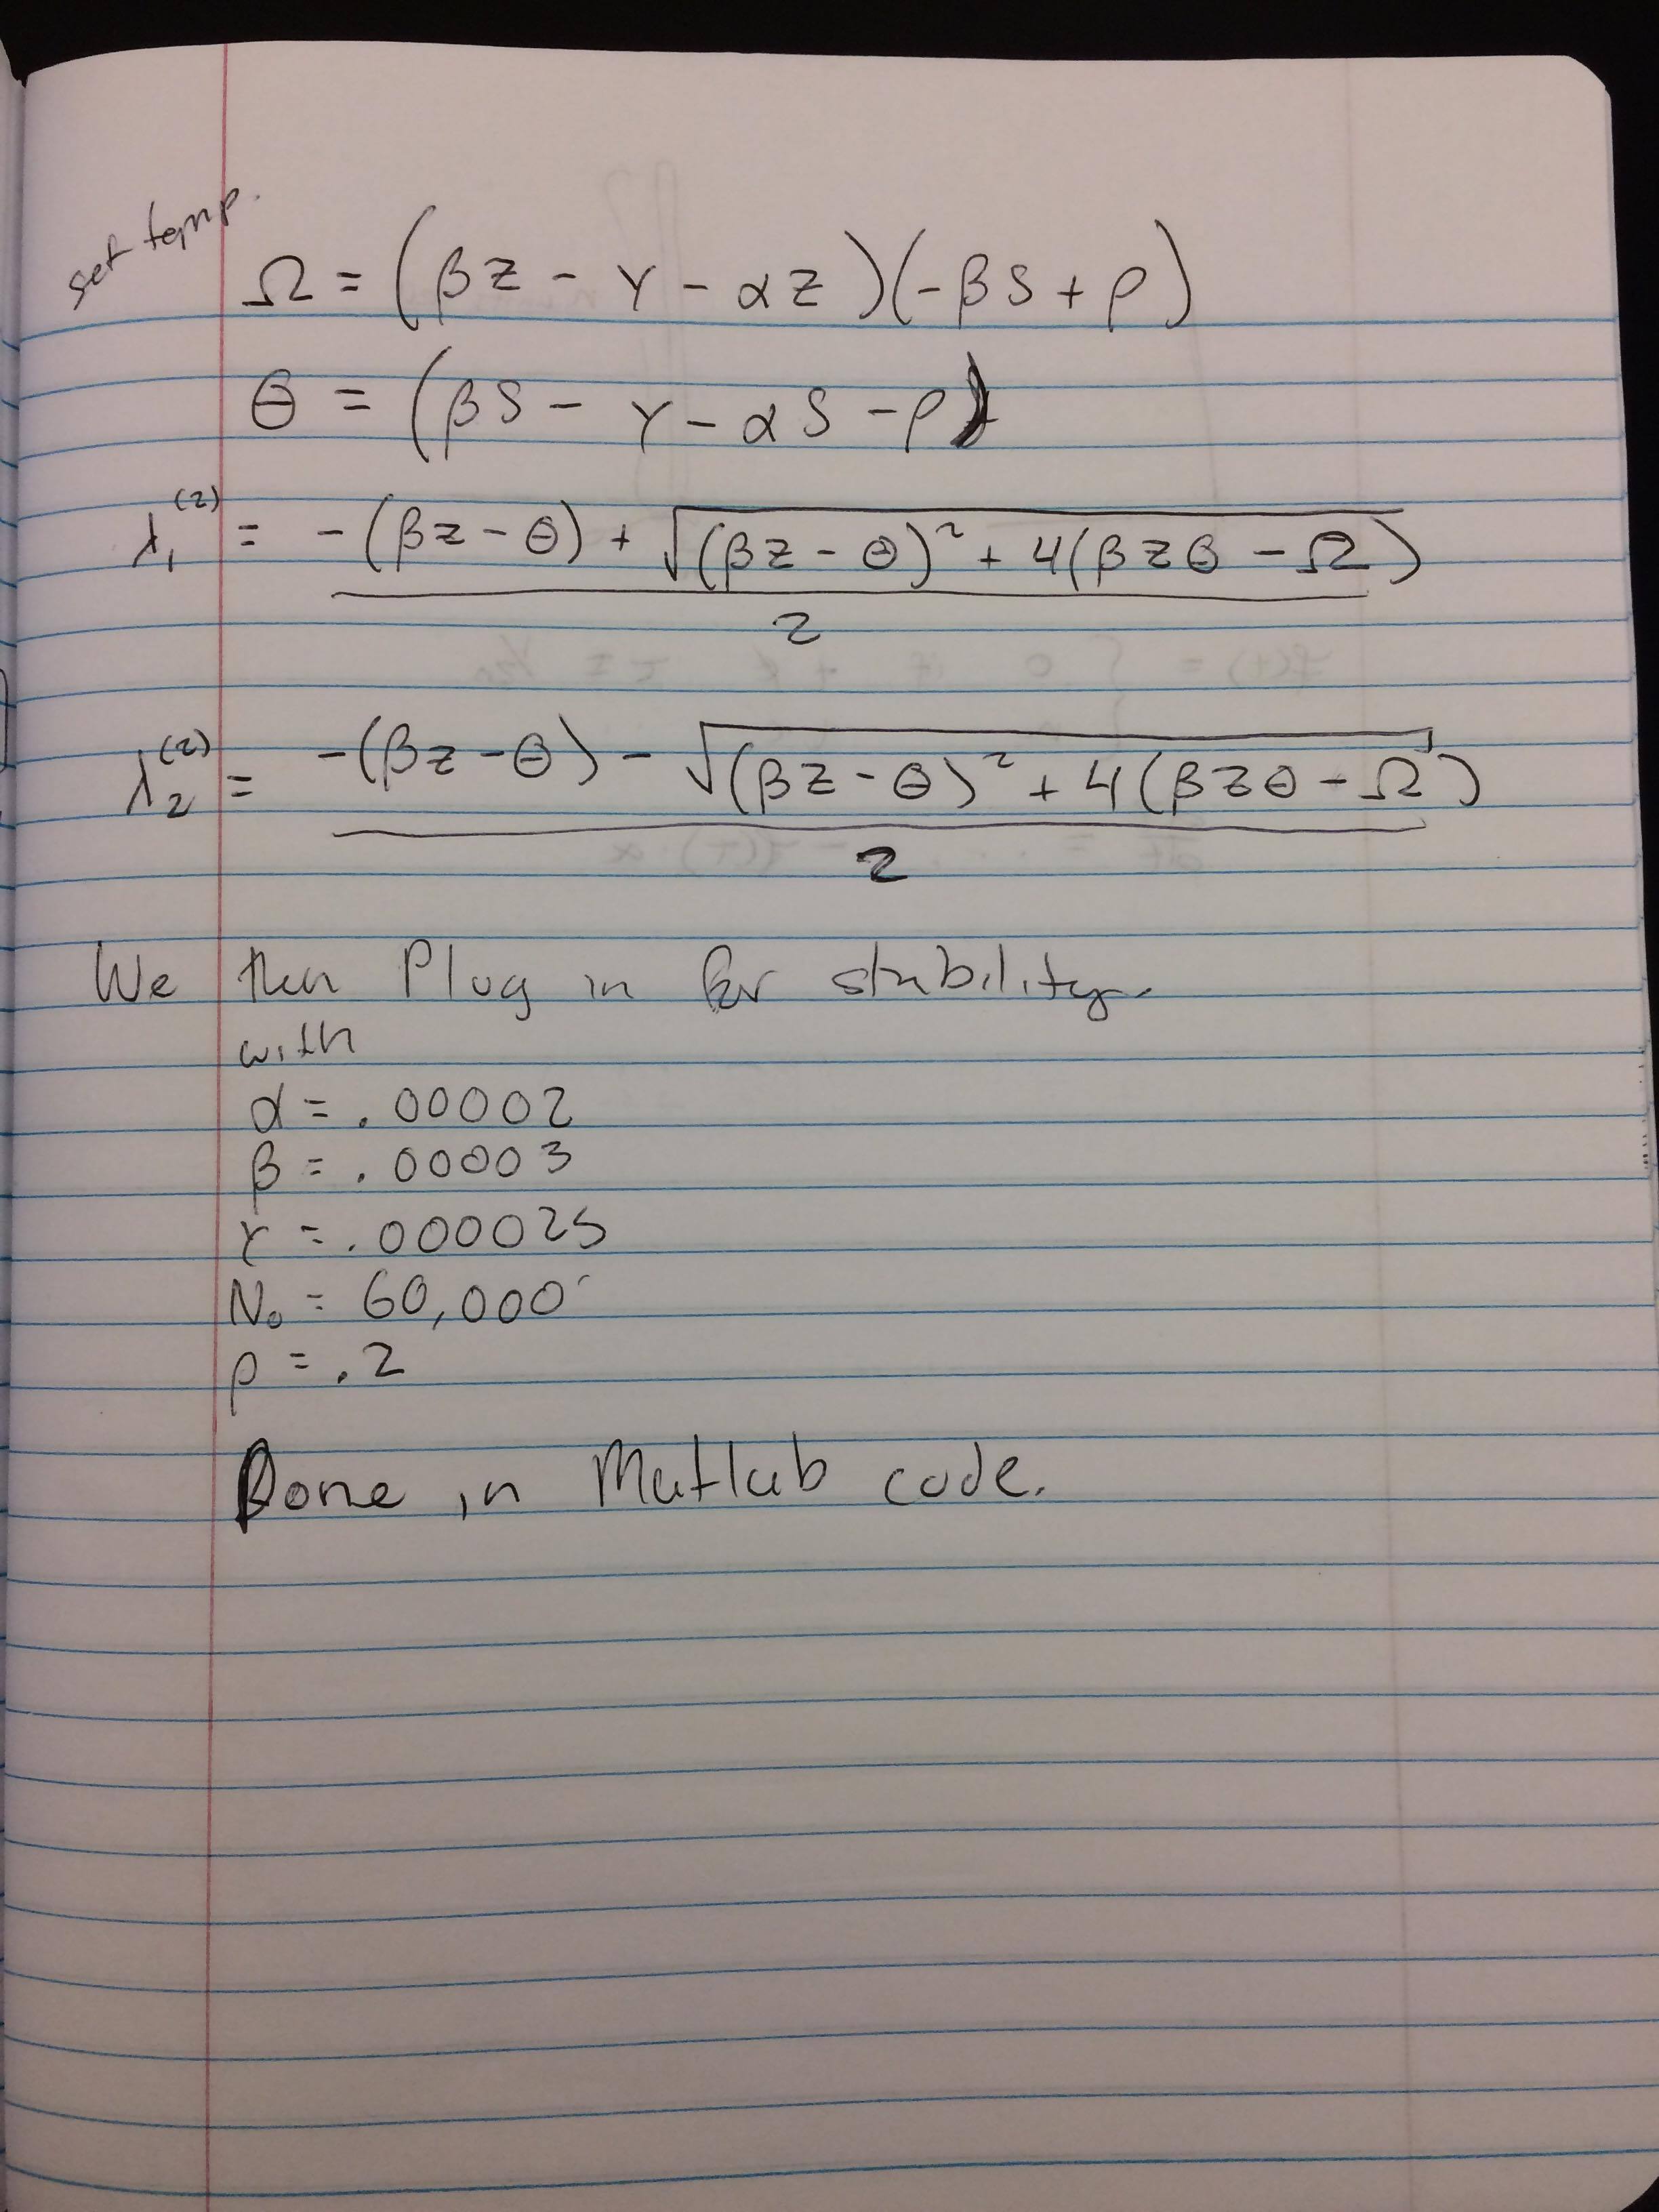 set temp.
Ω = (βz - γ - αz)(-βS + ρ)
θ = (βS - γ - αS - ρ)
λ₁⁽²⁾ = -(βz - θ) + √(βz - θ)² + 4(βzθ - Ω)
2
λ₂⁽²⁾ = -(βz - θ) - √(βz - θ)² + 4(βzθ - Ω)
2
We then Plug in for stability.
with
α = .00002
β = .00003
γ = .000025
N₀ = 60,000
ρ = .2
Done in Matlab code.